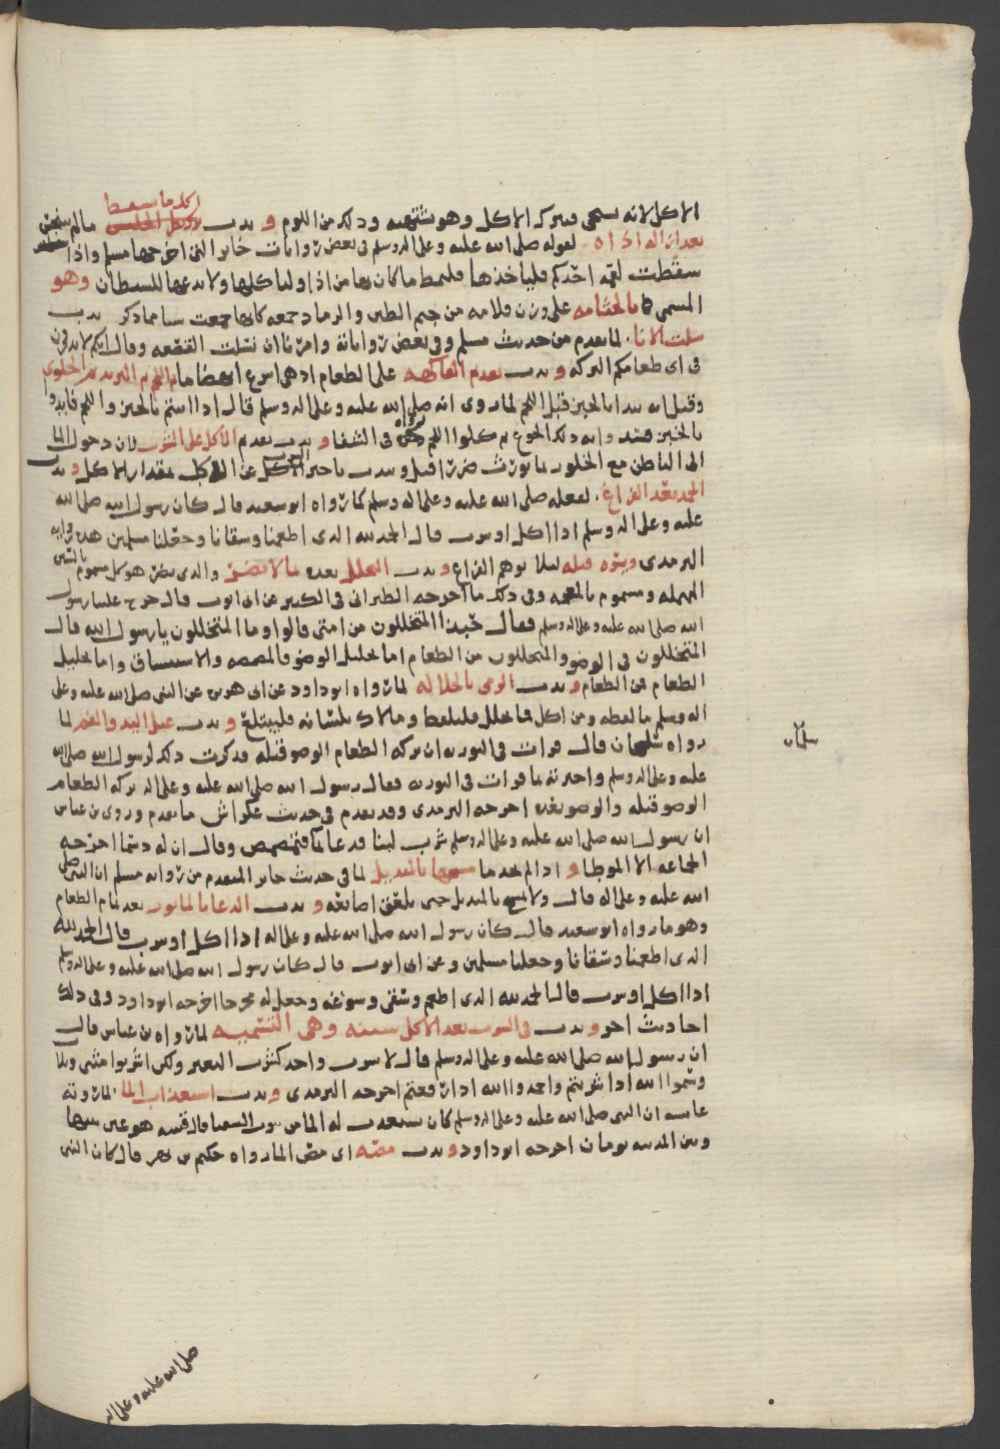 اكل ما سقط
الاكل لانه يستحى فيترك الاكل وهو يشتهيه وذلك من اللوم و ندب مالم يتنجس
بعد ازالة اذاه لقوله صلى الله عليه وعلى اله وسلم في بعض روايات جابر التي اخرجها مسلم واذا
سقطت لقمة احدكم فلياخذها فليمط ما كان بها من اذا وليا كلها ولا يدعها للشيطان وهو
المسمى بالحثامه على وزن قلامه من جثم الطين والرماد جمعه كانها جمعت ندب
سلت الانا لما تقدم من حديث مسلم وفي بعض رواياته وامرنا ان نسلت القصعه وقال انكم لا تدرون
في اي طعامكم البركه و ندب تقديم الفاكهه على الطعام اذ هي اسرع انهضاما ثم اللحم ثم الثريد ثم الحلوى
وقيل انه يبدا بالخبز قبل اللحم لما روى انه صلى الله عليه وعلى اله وسلم قال اذا اتيتم بالخبز واللحم فابدوا
بالخبز فسد وابه ذلك الجوع ثم كلوا اللحم في الشفا و ندب تقديم الاكل على الشرب لان دخول الما
الى الباطن مع الخلو ربما يورث ضررا قيل وندب تاخير عن الاكل بمقدار الاكل و ندب
الحمد بعد الفراغ لفعله صلى الله عليه وعلى اله وسلم كما رواه ابو سعيد قال كان رسول الله صلى الله
عليه وعلى اله وسلم اذا اكل او شرب قال الحمد لله الذي اطعمنا وسقانا وجعلنا مسلمين هذه روايه
الترمذي ويتره قبله ليلا يوهم الفراغ و ندب التخلل بعده بما لا يضر والذي يضر هو كل مسموم بالسين
المهمله ومشموم بالمعجمه وفي ذلك ما اخرجه الطبراني في الكبير عن ابي ايوب قال خرج علينا رسول
الله صلى الله عليه وعلى اله وسلم فقال حبذا المتخللون من امتي قالوا وما المتخللون يا رسول الله قال
المتخللون في الوضو والمتخللون من الطعام اما تخليل الوضو فالمضمضه والاستنشاق واما تخليل
الطعام فمن الطعام و ندب الرمي بالخلاله لما رواه ابو داود عن ابي هريره عن النبي صلى الله عليه وعلى
اله وسلم ما لفظه ومن اكل فما تخلل فليلفظ وما لاك بلسانه فليبتلع و ندب غسل اليد والفم لما
رواه سلمان قال قرات في التوريه ان بركه الطعام الوضو قبله فذكرت ذلك لرسول الله صلى الله
سلمان
عليه وعلى اله وسلم واخبرته بما قرات في التوريه فقال رسول الله صلى الله عليه وعلى اله بركه الطعام
الوضو قبله والوضو بعده اخرجه الترمذي وقد تقدم في حديث عكراش ما تقدم وروى بن عباس
ان رسول الله صلى الله عليه وعلى اله وسلم شرب لبنا فدعا بما فتمضمض وقال ان له دسما اخرجه
الجماعه الا الموطا و اذا لم يجد ما مسحها بالمنديل لما في حديث جابر المتقدم من روايه مسلم ان النبي صلى
الله عليه وعلى اله قال ولا يمسح بالمنديل حتى يلعق اصابعه و ندب الدعا بالماثور بعد تمام الطعام
وهو ما رواه ابو سعيد قال كان رسول الله صلى الله عليه وعلى اله اذا اكل او شرب قال الحمد لله
الذي اطعمنا وسقانا وجعلنا مسلمين وعن ابي ايوب قال كان رسول الله صلى الله عليه وعلى اله وسلم
اذا اكل او شرب قال الحمد لله الذي اطعم وسقى وسوغه وجعل له مخرجا اخرجه ابو داود وفي ذلك
احاديث اخر و ندب في الشرب بعد الاكل سننه وهي التسميه لما رواه بن عباس قال
ان رسول الله صلى الله عليه وعلى اله وسلم قال لا تشربوا واحدا كشرب البعير ولكن اشربوا مثنى وثلثا
وسموا الله اذا شربتم واحمدوا الله اذا رفعتم اخرجه الترمذي و ندب استعذاب الما لما روته
عايشه ان النبي صلى الله عليه وعلى اله وسلم كان يستعذب له الما من بيوت السقيا قال قتيبه هو عين بينها
وبين المدينه يومان اخرجه ابو داود و ندب مصه اي مص الما لما رواه حكيم بن بهز قال كان النبي
صلى الله عليه وعلى اله